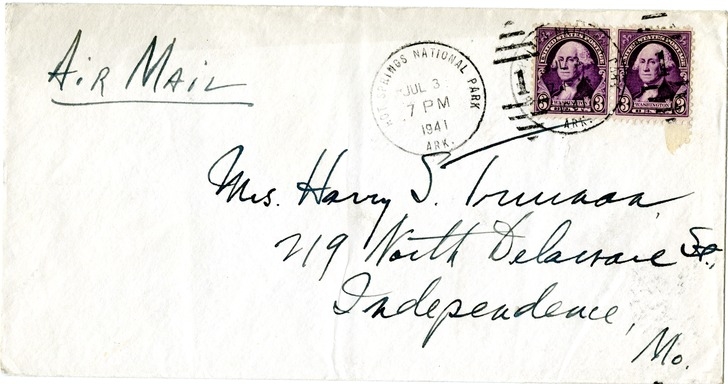 Air Mail
HOT SPRINGS NATIONAL PARK
JUL 3
7 PM
1941
ARK.
UNITED STATES POSTAGE
3 WASHINGTON 3
1
ARK.
Mrs. Harry S. Truman
219 North Delaware St.,
Independence,
Mo.